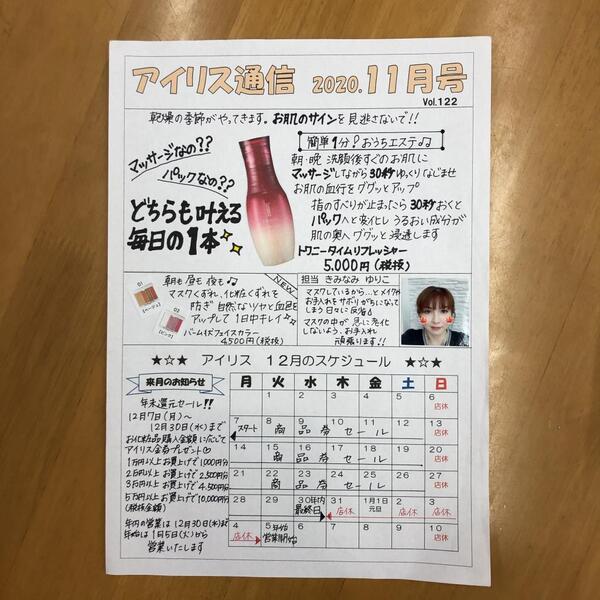 アイリス通信 2020.11月号
Vol.122
乾燥の季節がやってきます。お肌のサインを見逃さないで!!
マッサージなの??
パックなの??
どちらも叶える
毎日の1本
簡単1分?おうちエステ♪♪
朝・晩 洗顔後すぐのお肌に
マッサージしながら30秒ゆっくりなじませ
お肌の血行をググッとアップ
指のすべりが止まったら30秒おくと
パックへと変化し うるおい成分が
肌の奥へググッと浸透します
トワニータイムリフレッシャー
5,000円(税抜)
朝も昼も夜も♪
NEW
マスクくずれ、化粧くずれを
防ぎ 自然なツヤと血色を
アップして1日中キレイ
バーム状フェイスカラー
4,500円(税抜)
01
[ベージュ]
02
[ピンク]
担当 きみなみ ゆりこ
マスクしているから…とメイクや
お手入れをサボりがちになって
しまう日々に反省
マスクの中が急に老化
しないよう、お手入れ
頑張ります!!
★☆★ アイリス 12月のスケジュール ★☆★
来月のお知らせ
年末還元セール!!
12月7日(月)~
12月30日(水)まで
お化粧品購入金額に応じて
アイリス金券プレゼント♡
1万円以上お買上げで1,000円分
2万円以上お買上げで2,500円分
3万円以上お買上げで4,500円分
5万円以上お買上げで10,000円分
(税抜金額)
年内の営業は12月30日(水)まで
年始は1月5日(火)から
営業いたします
月 火 水 木 金 土 日
1 2 3 4 5 6
店休
7 8 9 10 11 12 13
スタート 商品券セール 店休
14 15 16 17 18 19 20
商品券セール 店休
21 22 23 24 25 26 27
商品券セール 店休
28 29 30年内 31 1月1日 2 3
最終日 店休 元旦 店休 店休
4 5年始 6 7 8 9 10
店休 営業開始 店休